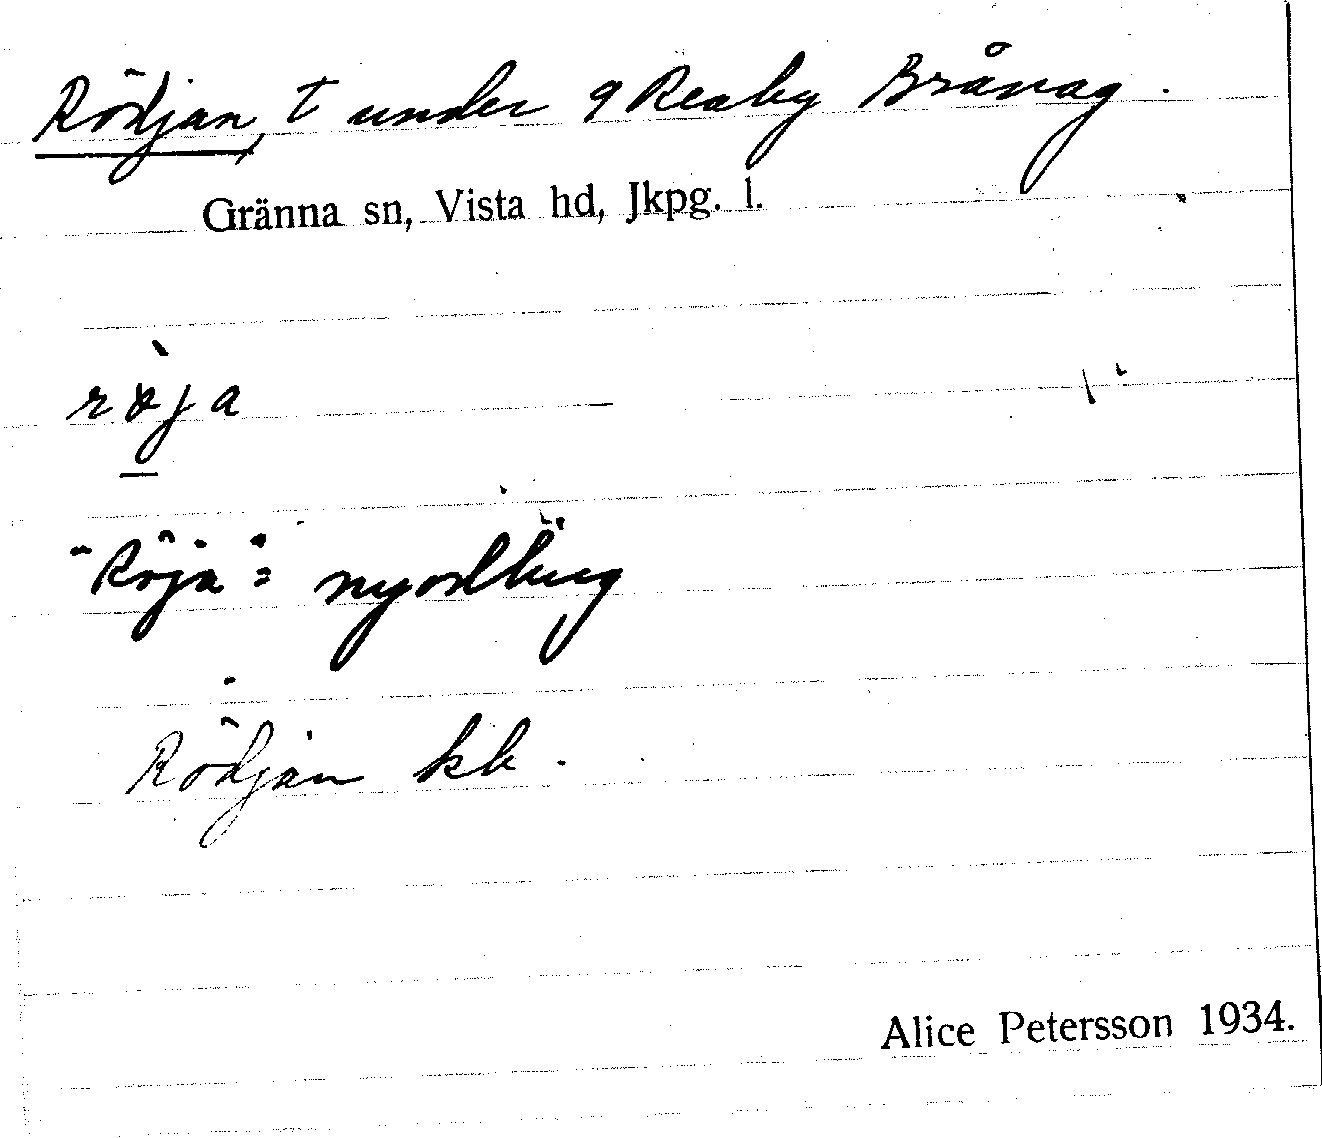 Rödjan, t under g Reaby Brånag.
Gränna sn, Vista hd, Jkpg. l.
röja
"Röja" = nyodling
Rödjan kb.
Alice Petersson 1934.